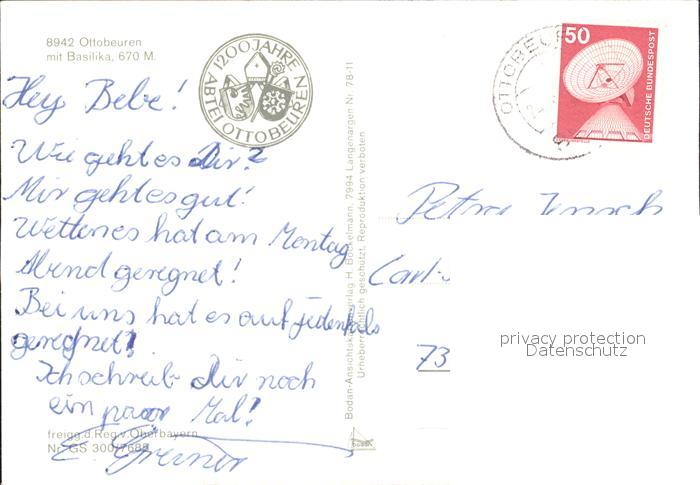 8942 Ottobeuren
mit Basilika, 670 M.
1200 JAHRE
ABTEI OTTOBEUREN
Hey Bebe!
Wie geht es dir?
Mir geht es gut!
Wetten es hat am Montag
Abend geregnet!
Bei uns hat es auf jedenfals
geregnet!
Ich schreib dir noch
ein paar Mal!
freigg.d.Reg.v.Oberbayern
Nr. GS 300/7688
Bodan-Ansichtskartenverlag H. Bockelmann, 7994 Langenargen Nr. 78-11
Urheberrechtlich geschützt, Reproduktion verboten
OTTOBEU
50
DEUTSCHE BUNDESPOST
Petra
Carl-
73
privacy protection
Datenschutz